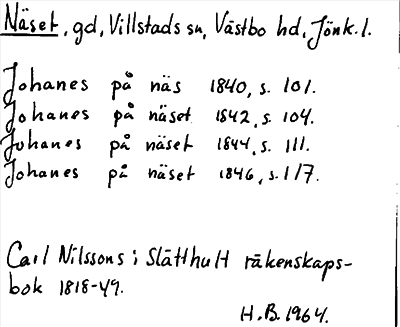 Näset, gd, Villstads sn, Västbo hd, Jönk. l.
Johanes på näs 1840, s. 101.
Johanes på näset 1842, s. 104.
Johanes på näset 1844, s. 111.
Johanes på näset 1846, s. 117.
Carl Nilssons i Slätthult räkenskaps-
bok 1818-49.
H.B. 1964.